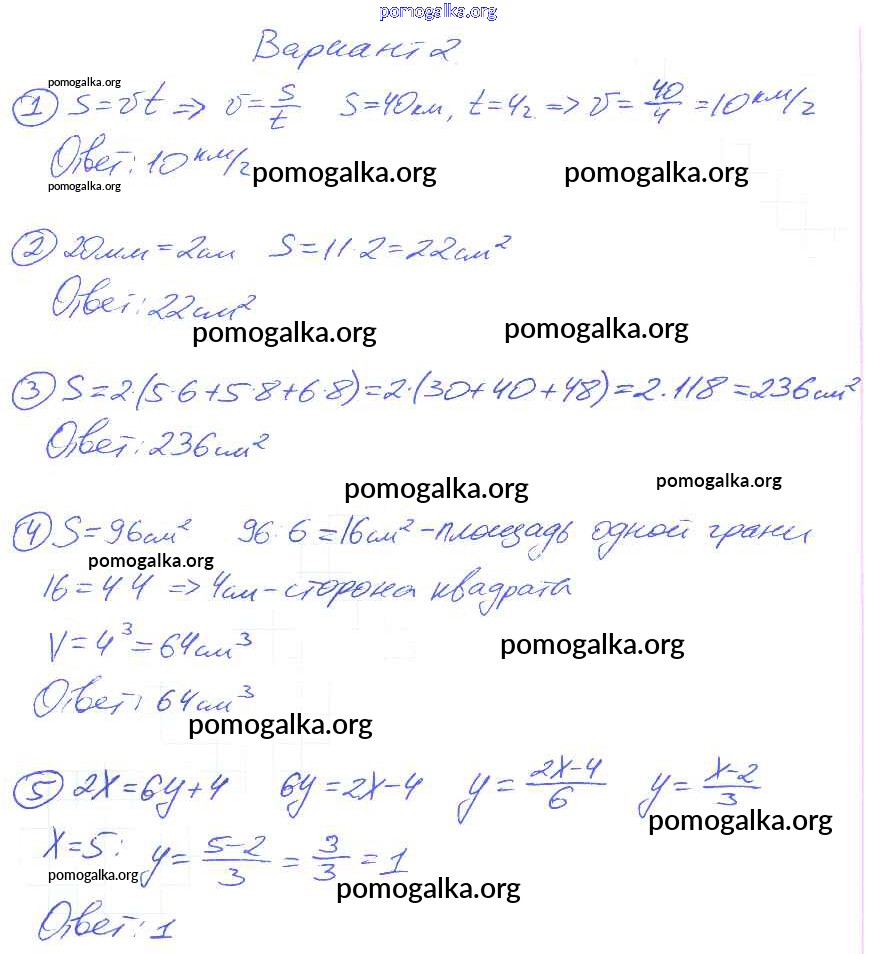 pomogalka.org
Вариант 2
pomogalka.org
1 S=vt => v=S/t S=40км, t=4г => v=40/4=10км/г
Ответ: 10км/г
pomogalka.org pomogalka.org pomogalka.org
2 20мм=2см S=11·2=22см²
Ответ: 22см²
pomogalka.org pomogalka.org
3 S=2·(5·6+5·8+6·8)=2·(30+40+48)=2·118=236см²
Ответ: 236см²
pomogalka.org pomogalka.org
4 S=96см² 96:6=16см²-площадь одной грани
pomogalka.org
16=4·4 => 4см-сторона квадрата
V=4³=64см³
pomogalka.org
Ответ: 64см³
pomogalka.org
5 2x=6y+4 6y=2x-4 y=(2x-4)/6 y=(x-2)/3
pomogalka.org
x=5: y=(5-2)/3=3/3=1
pomogalka.org pomogalka.org
Ответ: 1